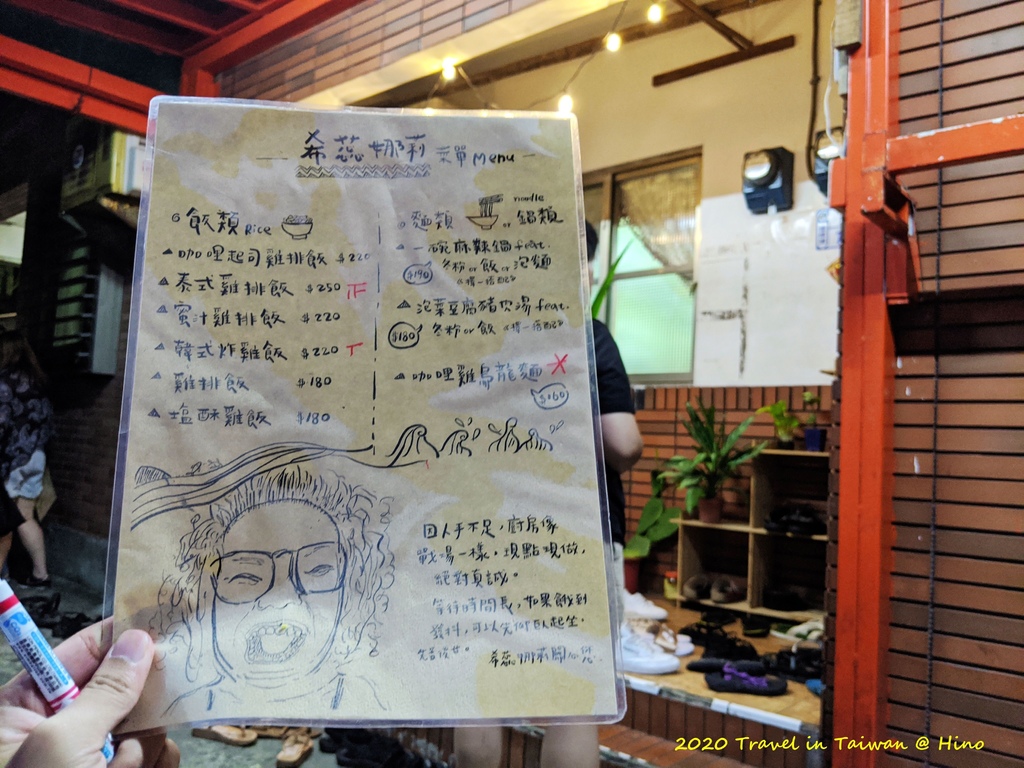 希蕊娜莉 菜單 Menu
飯類 Rice
咖哩起司雞排飯 $220
泰式雞排飯 $250 正
蜜汁雞排飯 $220
韓式炸雞飯 $220 T
雞排飯 $180
塩酥雞飯 $180
麵類 noodle or 鍋類
一碗麻辣鍋 feat.
$190 冬粉 or 飯 or 泡麵
《擇一搭配》
泡菜豆腐豬肉湯 feat.
$180 冬粉 or 飯《擇一搭配》
咖哩雞烏龍麵
$160
因人手不足,廚房像
戰場一樣,現點現做,
絕對真誠。
等待時間長,如果餓到
發抖,可以先仰臥起坐,
希蕊娜莉關心您
2020 Travel in Taiwan @ Hino